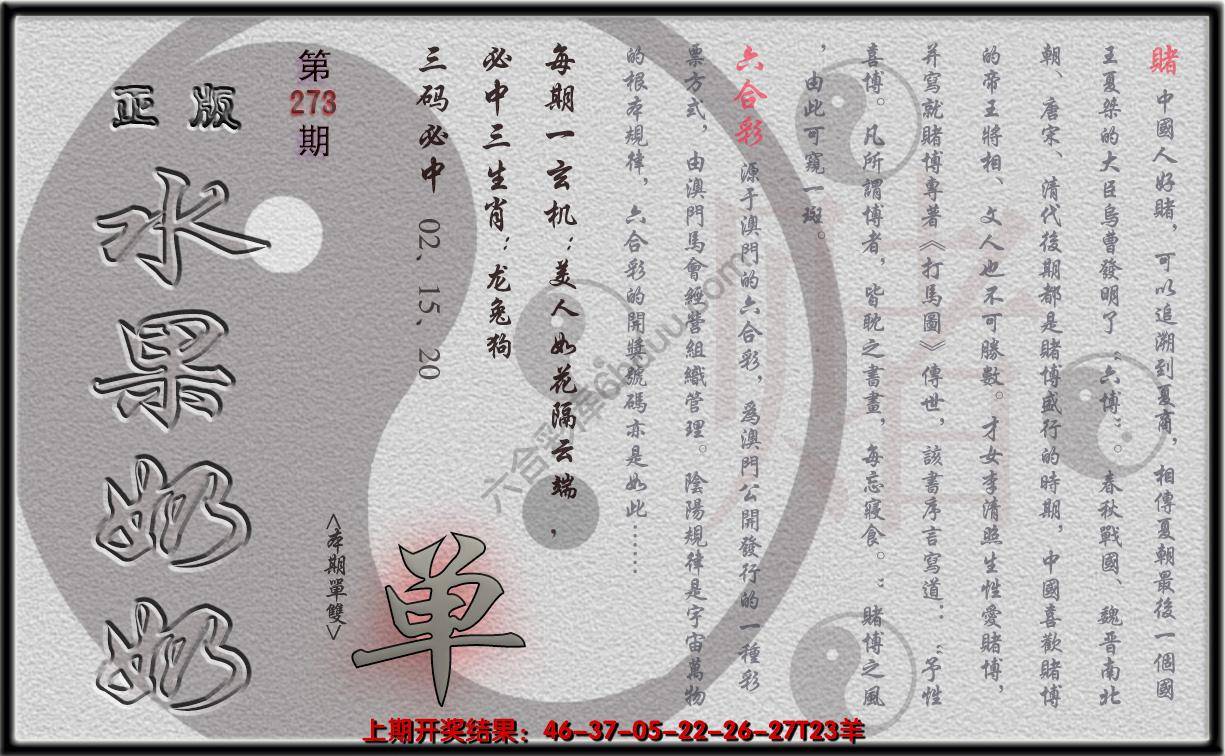 賭 中國人好賭，可以追溯到夏商，相傳夏朝最後一個國
王夏桀的大臣烏曹發明了“六博”。春秋戰國、魏晋南北
朝、唐宋、清代後期都是賭博盛行的時期，中國喜歡賭博
的帝王將相、文人也不可勝數。才女李清照生性愛賭博，
并寫就賭博專著《打馬圖》傳世，該書序言寫道：“予性
喜博。凡所謂博者，皆耽之書畫，每忘寢食。”賭博之風
，由此可窺一斑。
六合彩 源于澳門的六合彩，爲澳門公開發行的一種彩
票方式，由澳門馬會經營組織管理。陰陽規律是宇宙萬物
的根本規律，六合彩的開獎號碼亦是如此……
每期一玄机：美人如花隔云端，
必中三生肖：龙兔狗
三码必中 02、15、20
第
273
期
正版
水果奶奶
<本期單雙>
单
賭
上期开奖结果：46-37-05-22-26-27T23羊